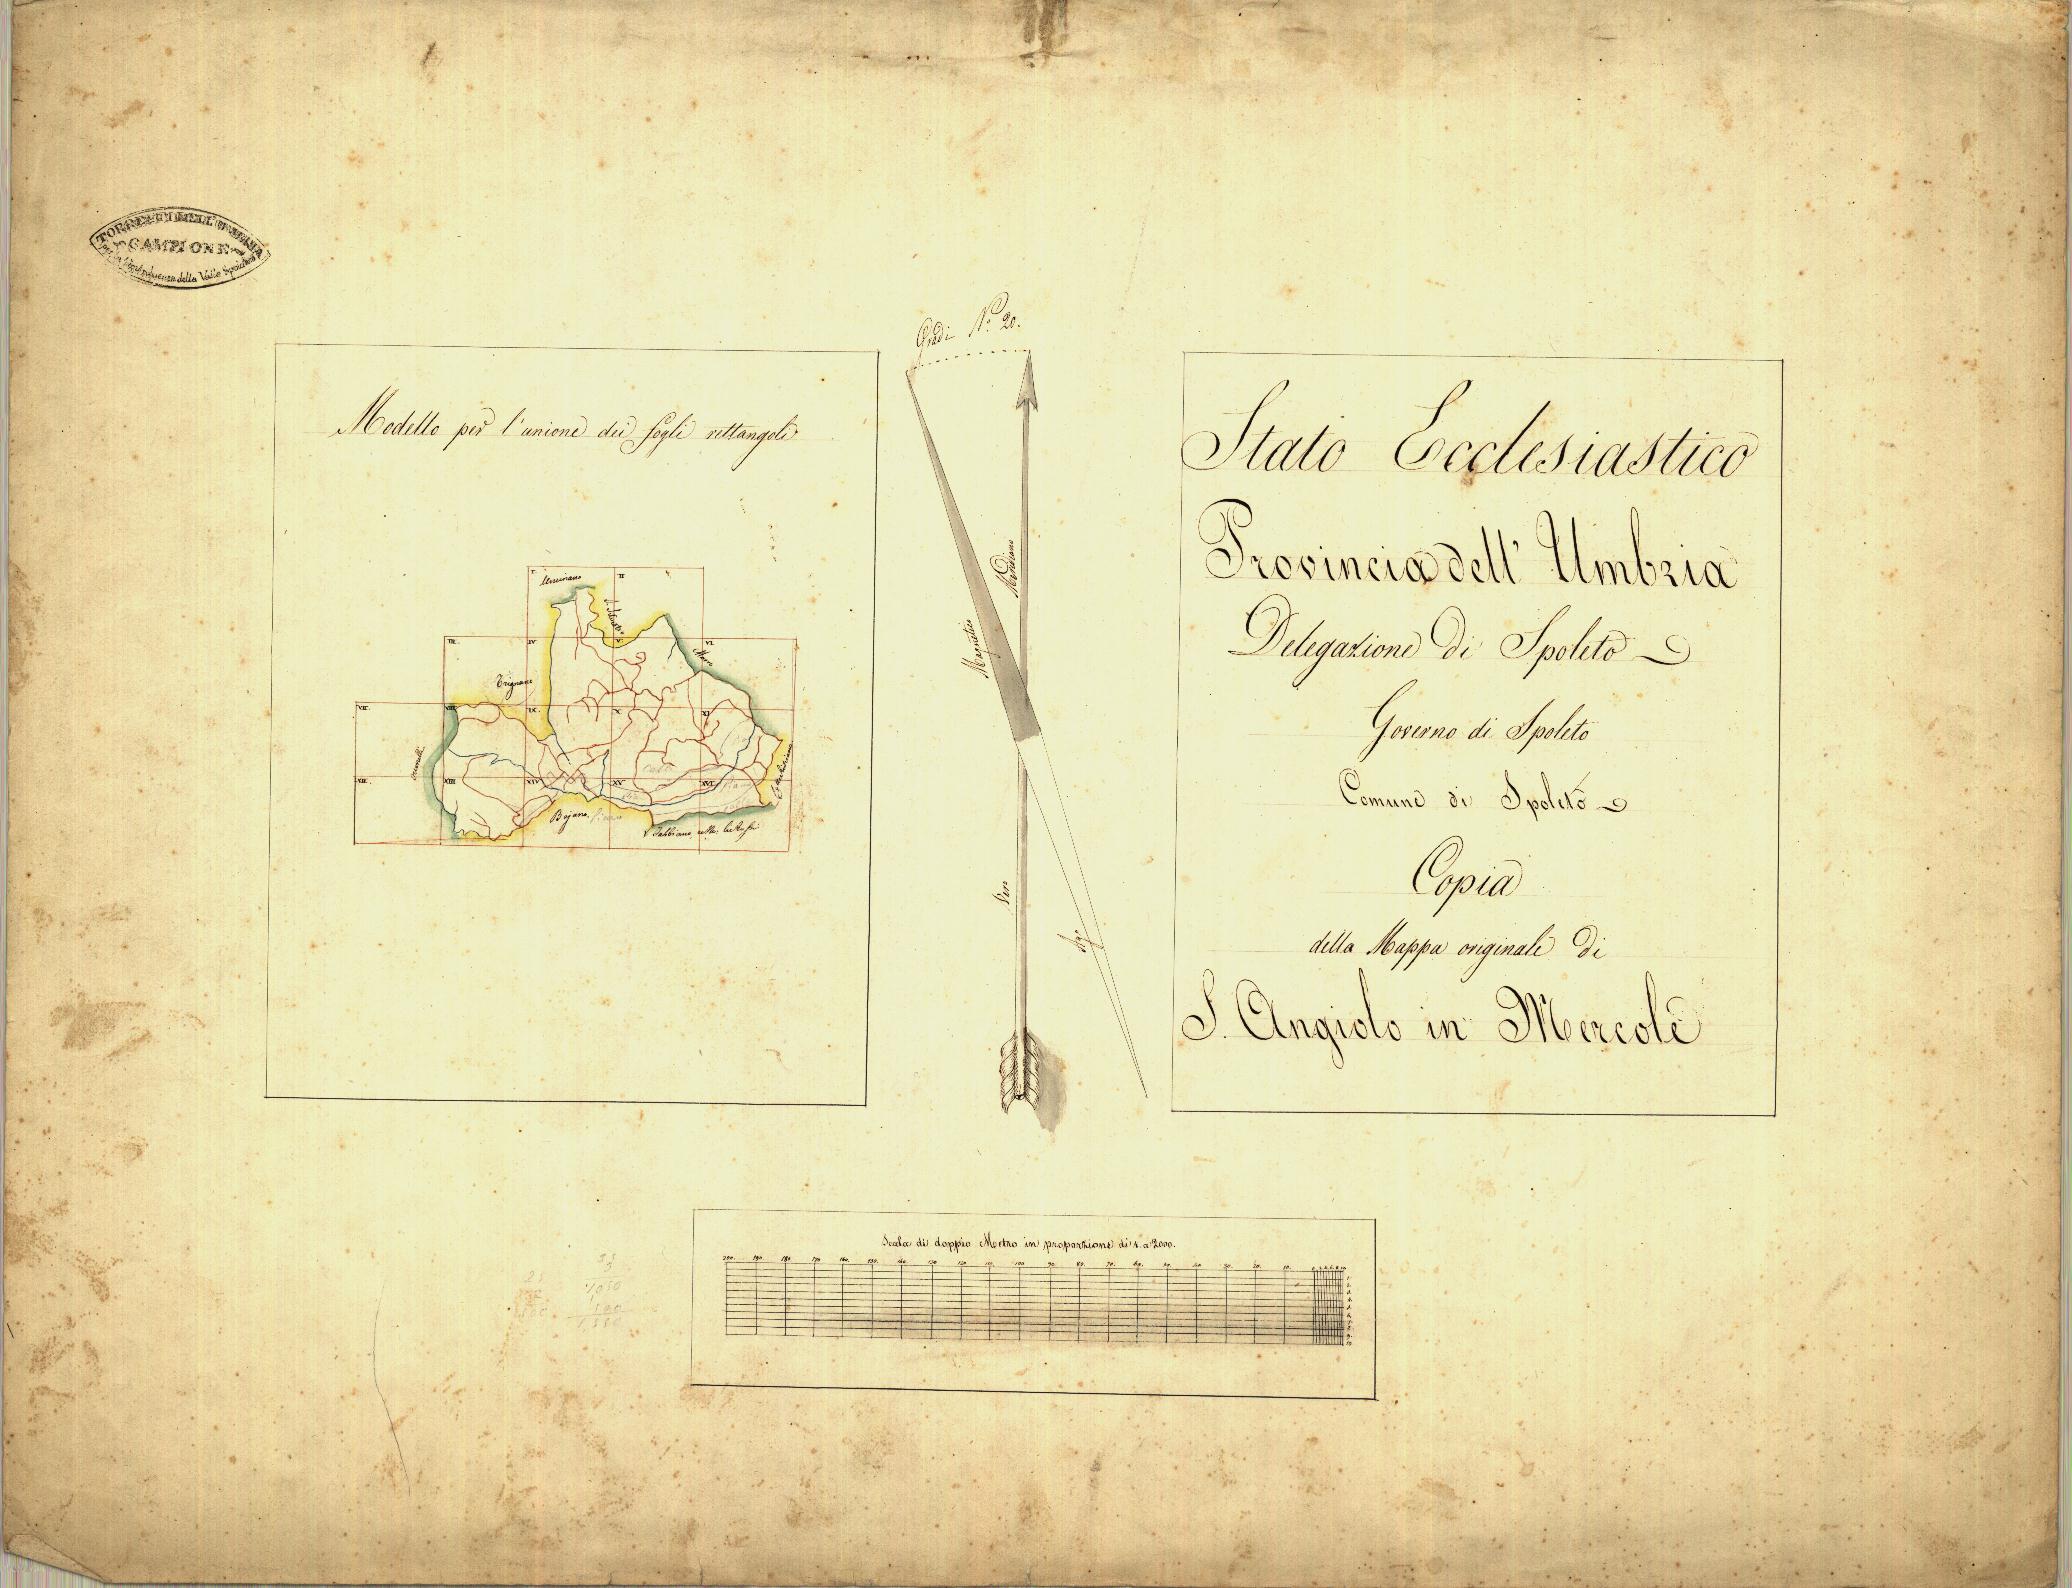 CAMPIONE
Modello per l'unione dei fogli rettangoli
I.
II
III.
IV
V
VI
Trignano
VII.
VIII.
IX.
X.
XI
XII.
XIII
XIV
XV
XVI
Bajano
Gradi N.° 20.
Meridiano
Magnetico
Vero
Ago
Stato Ecclesiastico
Provincia dell' Umbria
Delegazione di Spoleto
Governo di Spoleto
Comune di Spoleto
Copia
della Mappa originale di
S. Angiolo in Mercole
Scala di doppio Metro in proporzione di 1. a 2000.
200. 190. 180. 170. 160. 150. 140. 130. 120. 110. 100. 90. 80. 70. 60. 50. 40. 30. 20. 10.